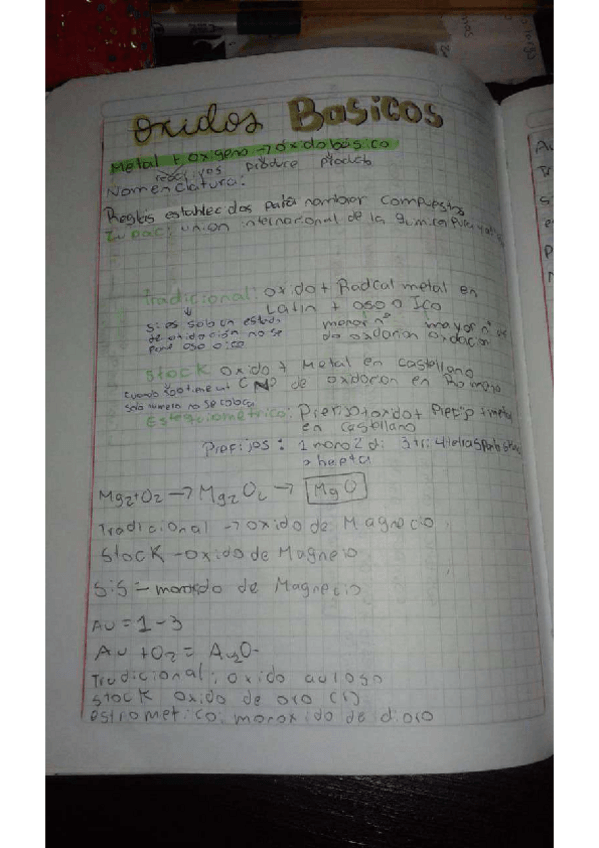 Oxidos Basicos
Metal + Oxigeno → óxido básico
reactivos produce
Nomenclatura:
Reglas establecidas para nombrar compuestos
Iupac: union internacional de la quimica pura y
Tradicional: oxido + Radcal metal en
Latin + oso o Ico
Si es solo un estado
de oxidación no se
pone oso o ico
menor n° mayor n° de
do oxidacion oxidacion
Stock oxido + Metal en castellano
(N° de oxidacion en Romano
cuando
solo numero no se coloca
Estequiometrico: Prefijo + oxido + Prefijo + metal
en castellano
Prefijos: 1 mono 2 di 3 tri 4 tetra 5 penta
7 hepta
Mg2+O2 → Mg2O2 → MgO
Tradicional → oxido de Magnecio
Stock - oxido de Magneio
Sis = de Magnecio
Au = 1-3
Au + O2 = Au2O-
Tradicional: oxido auloso
Stock oxido de oro (I)
estrometrico: monoxido de dioro